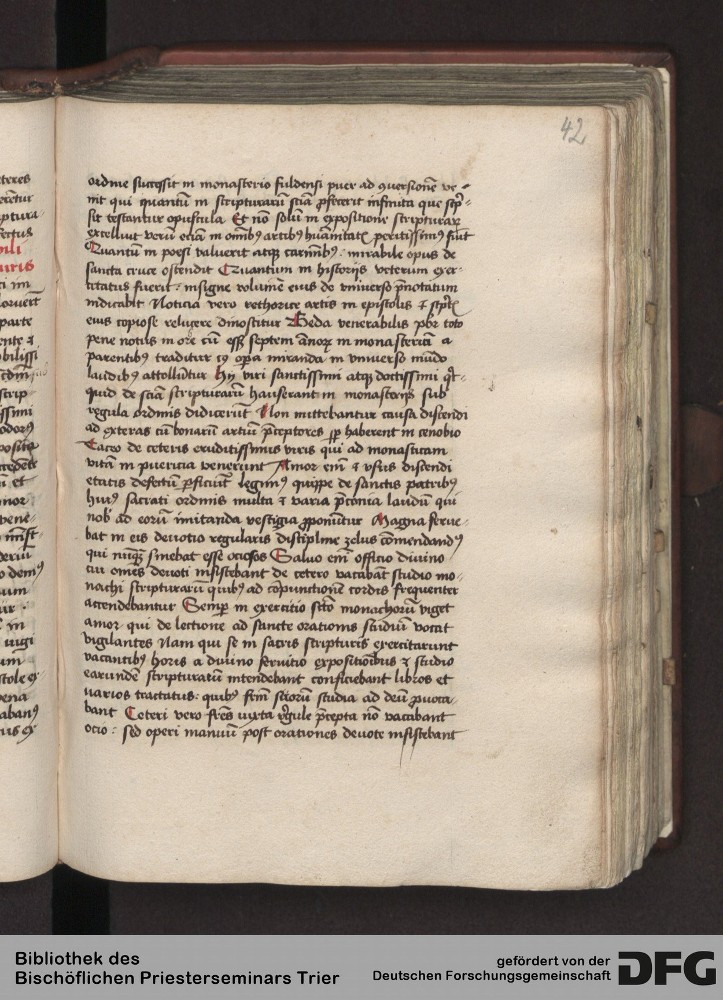 42
ordine succēsit in monasterio fuldensi puer ad ꝯuersionē ve-
nit qui quantū in scripturarū sciā ꝓfecerit infinita que scp̄-
sit testantur opuscula Et nō solū in expositione scripturaꝝ
excelluit verū eciā in omībꝰ artibꝰ huānitatꝭ peritissimꝰ fuit
Quantū in poesi valuerit atqꝫ carminībꝰ: mirabile opus de
sancta cruce ostendit Quantum in historijs veterum exer-
citatus fuerit: insigne volumē eius de vniuerso p̄notatum
indicabit Noticia vero rethorice artis in epistolis ⁊ scptꝭ
eius copiose relucere dinoscitur Beda venerabilis pb̄r toto
pene notus in orꝭe cū eēt septem ānorꝝ in monasteriū a
parentibꝰ traditur cꝰ oꝑa miranda in vniuerso mūdo
laudibꝰ attollūtur Hij viri sanctissimi atqꝫ doctissimi qͥc-
quid de sciā scripturarū hauserant in monasterijs sub
regula ordinis didicerūt Non mittebantur causa discendi
ad exteras cū bonarū artiū p̄ceptores ꝓp̄ haberent in cenobio
Taceo de ceteris eruditissimis viris qui ad monasticam
vitā in puericia venerunt Amor em̄ ⁊ vsus discendi
etatis defectū ꝑficiūt legimꝰ quippe de sanctis patribꝰ
huiꝰ sacrati ordinis multa ⁊ varia p̄conia laudū qui
nob̄ ad eorū imitanda vestigia ꝓponūtur Magna ferue-
bat in eis deuotio regularis discipline zelus cōmendandꝰ
qui nūqꝫ sinebat esse ociosos Saluo em̄ officio diuino
cui omēs deuoti insistebant de cetero vacabāt studio mo-
nachi scripturarū quibꝰ ad cōpunctionē cordis frequenter
accendebantur Semꝑ in exercitio scīo monachorū viget
amor qui de lectione ad sancte orationis studiū vocat
vigilantes Nam qui se in sacris scripturis exercitarunt
vacantibꝰ horis a diuino seruitio expositionībus ⁊ studio
earundē scripturarū intendebant conficiebant libros et
uarios tractatus: quibꝰ frm̄ suorū studia ad deū ꝓuoca-
bant Ceteri vero fr̄es iuxta rēgule p̄cepta nō vacabant
ocio: sed operi manuū post orationes deuote insistebant
Bibliothek des
Bischöflichen Priesterseminars Trier
gefördert von der
Deutschen Forschungsgemeinschaft
DFG